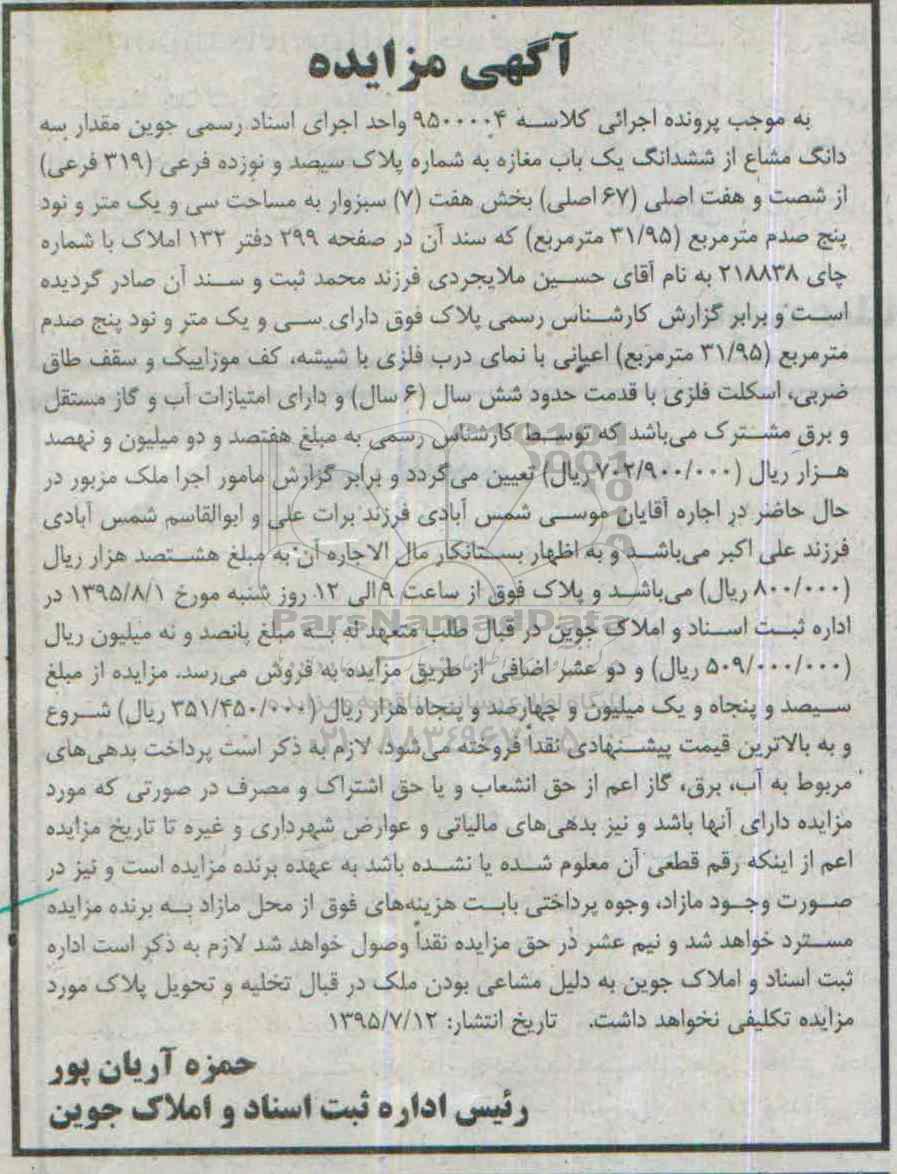 آگهی مزایده
به موجب پرونده اجرائی کلاسه ۹۵۰۰۰۰۴ واحد اجرای اسناد رسمی جوین مقدار سه
دانگ مشاع از ششدانگ یک باب مغازه به شماره پلاک سیصد و نوزده فرعی (۳۱۹ فرعی)
از شصت و هفت اصلی (۶۷ اصلی) بخش هفت (۷) سبزوار به مساحت سی و یک متر و نود
پنج صدم مترمربع (۳۱/۹۵ مترمربع) که سند آن در صفحه ۲۹۹ دفتر ۱۳۲ املاک با شماره
چاپی ۲۱۸۸۳۸ به نام آقای حسین ملایجردی فرزند محمد ثبت و سند آن صادر گردیده
است و برابر گزارش کارشناس رسمی پلاک فوق دارای سی و یک متر و نود پنج صدم
مترمربع (۳۱/۹۵ مترمربع) اعیانی با نمای درب فلزی با شیشه، کف موزاییک و سقف طاق
ضربی، اسکلت فلزی با قدمت حدود شش سال (۶ سال) و دارای امتیازات آب و گاز مستقل
و برق مشترک می‌باشد که توسط کارشناس رسمی به مبلغ هفتصد و دو میلیون و نهصد
هزار ریال (۷۰۲/۹۰۰/۰۰۰ ریال) تعیین می‌گردد و برابر گزارش مامور اجرا ملک مزبور در
حال حاضر در اجاره آقایان موسی شمس آبادی فرزند برات علی و ابوالقاسم شمس آبادی
فرزند علی اکبر می‌باشد و به اظهار بستانکار مال الاجاره آن به مبلغ هشتصد هزار ریال
(۸۰۰/۰۰۰ ریال) می‌باشد و پلاک فوق از ساعت ۹ الی ۱۲ روز شنبه مورخ ۱۳۹۵/۸/۱ در
اداره ثبت اسناد و املاک جوین در قبال طلب متعهد له به مبلغ پانصد و نه میلیون ریال
(۵۰۹/۰۰۰/۰۰۰ ریال) و دو عشر اضافی از طریق مزایده به فروش می‌رسد. مزایده از مبلغ
سیصد و پنجاه و یک میلیون و چهارصد و پنجاه هزار ریال (۳۵۱/۴۵۰/۰۰۰ ریال) شروع
و به بالاترین قیمت پیشنهادی نقدا فروخته می‌شود. لازم به ذکر است پرداخت بدهی‌های
مربوط به آب، برق، گاز اعم از حق انشعاب و یا حق اشتراک و مصرف در صورتی که مورد
مزایده دارای آنها باشد و نیز بدهی‌های مالیاتی و عوارض شهرداری و غیره تا تاریخ مزایده
اعم از اینکه رقم قطعی آن معلوم شده یا نشده باشد به عهده برنده مزایده است و نیز در
صورت وجود مازاد، وجوه پرداختی بابت هزینه‌های فوق از محل مازاد به برنده مزایده
مسترد خواهد شد و نیم عشر در حق مزایده نقداً وصول خواهد شد لازم به ذکر است اداره
ثبت اسناد و املاک جوین به دلیل مشاعی بودن ملک در قبال تخلیه و تحویل پلاک مورد
مزایده تکلیفی نخواهد داشت. تاریخ انتشار: ۱۳۹۵/۷/۱۲
حمزه آریان پور
رئیس اداره ثبت اسناد و املاک جوین
ParsNamadData